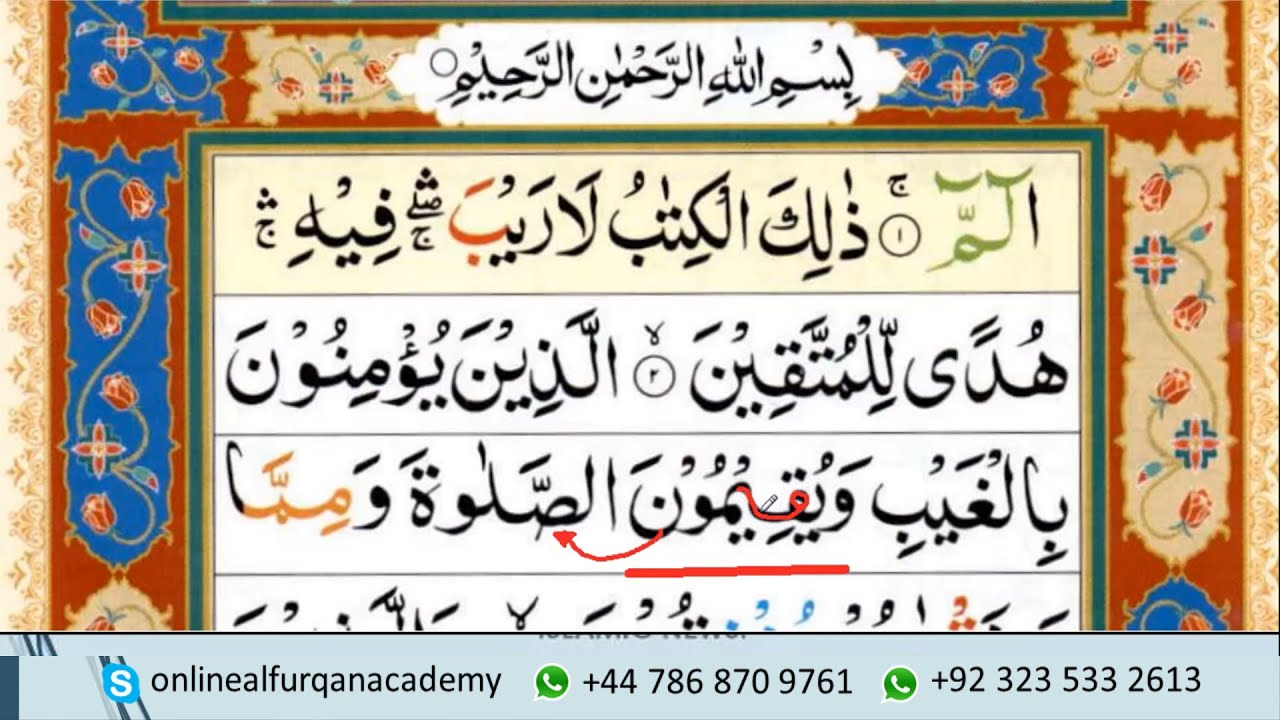 بِسْمِ اللهِ الرَّحْمٰنِ الرَّحِيْمِ
الٓمّٓ ۚ ۝۱ ذٰلِكَ الْكِتٰبُ لَا رَيْبَ ۛۖۚ فِيْهِ ۛۚ
هُدًى لِّلْمُتَّقِيْنَ ۙ ۝۲ الَّذِيْنَ يُؤْمِنُوْنَ
بِالْغَيْبِ وَيُقِيْمُوْنَ الصَّلٰوةَ وَمِمَّا
onlinealfurqanacademy +44 786 870 9761 +92 323 533 2613